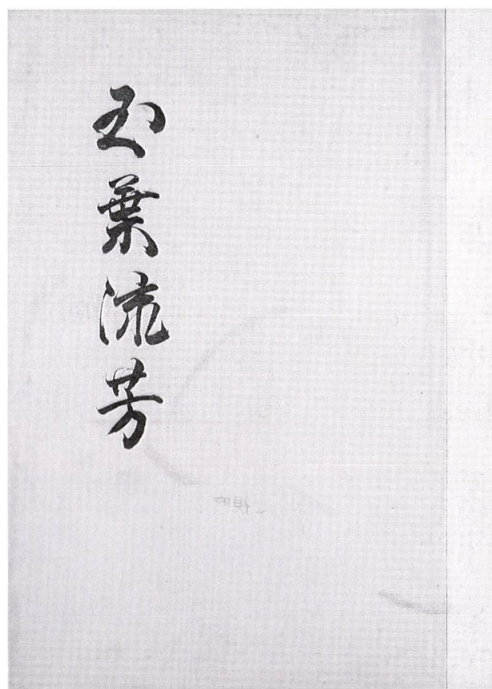 玉葉流芳